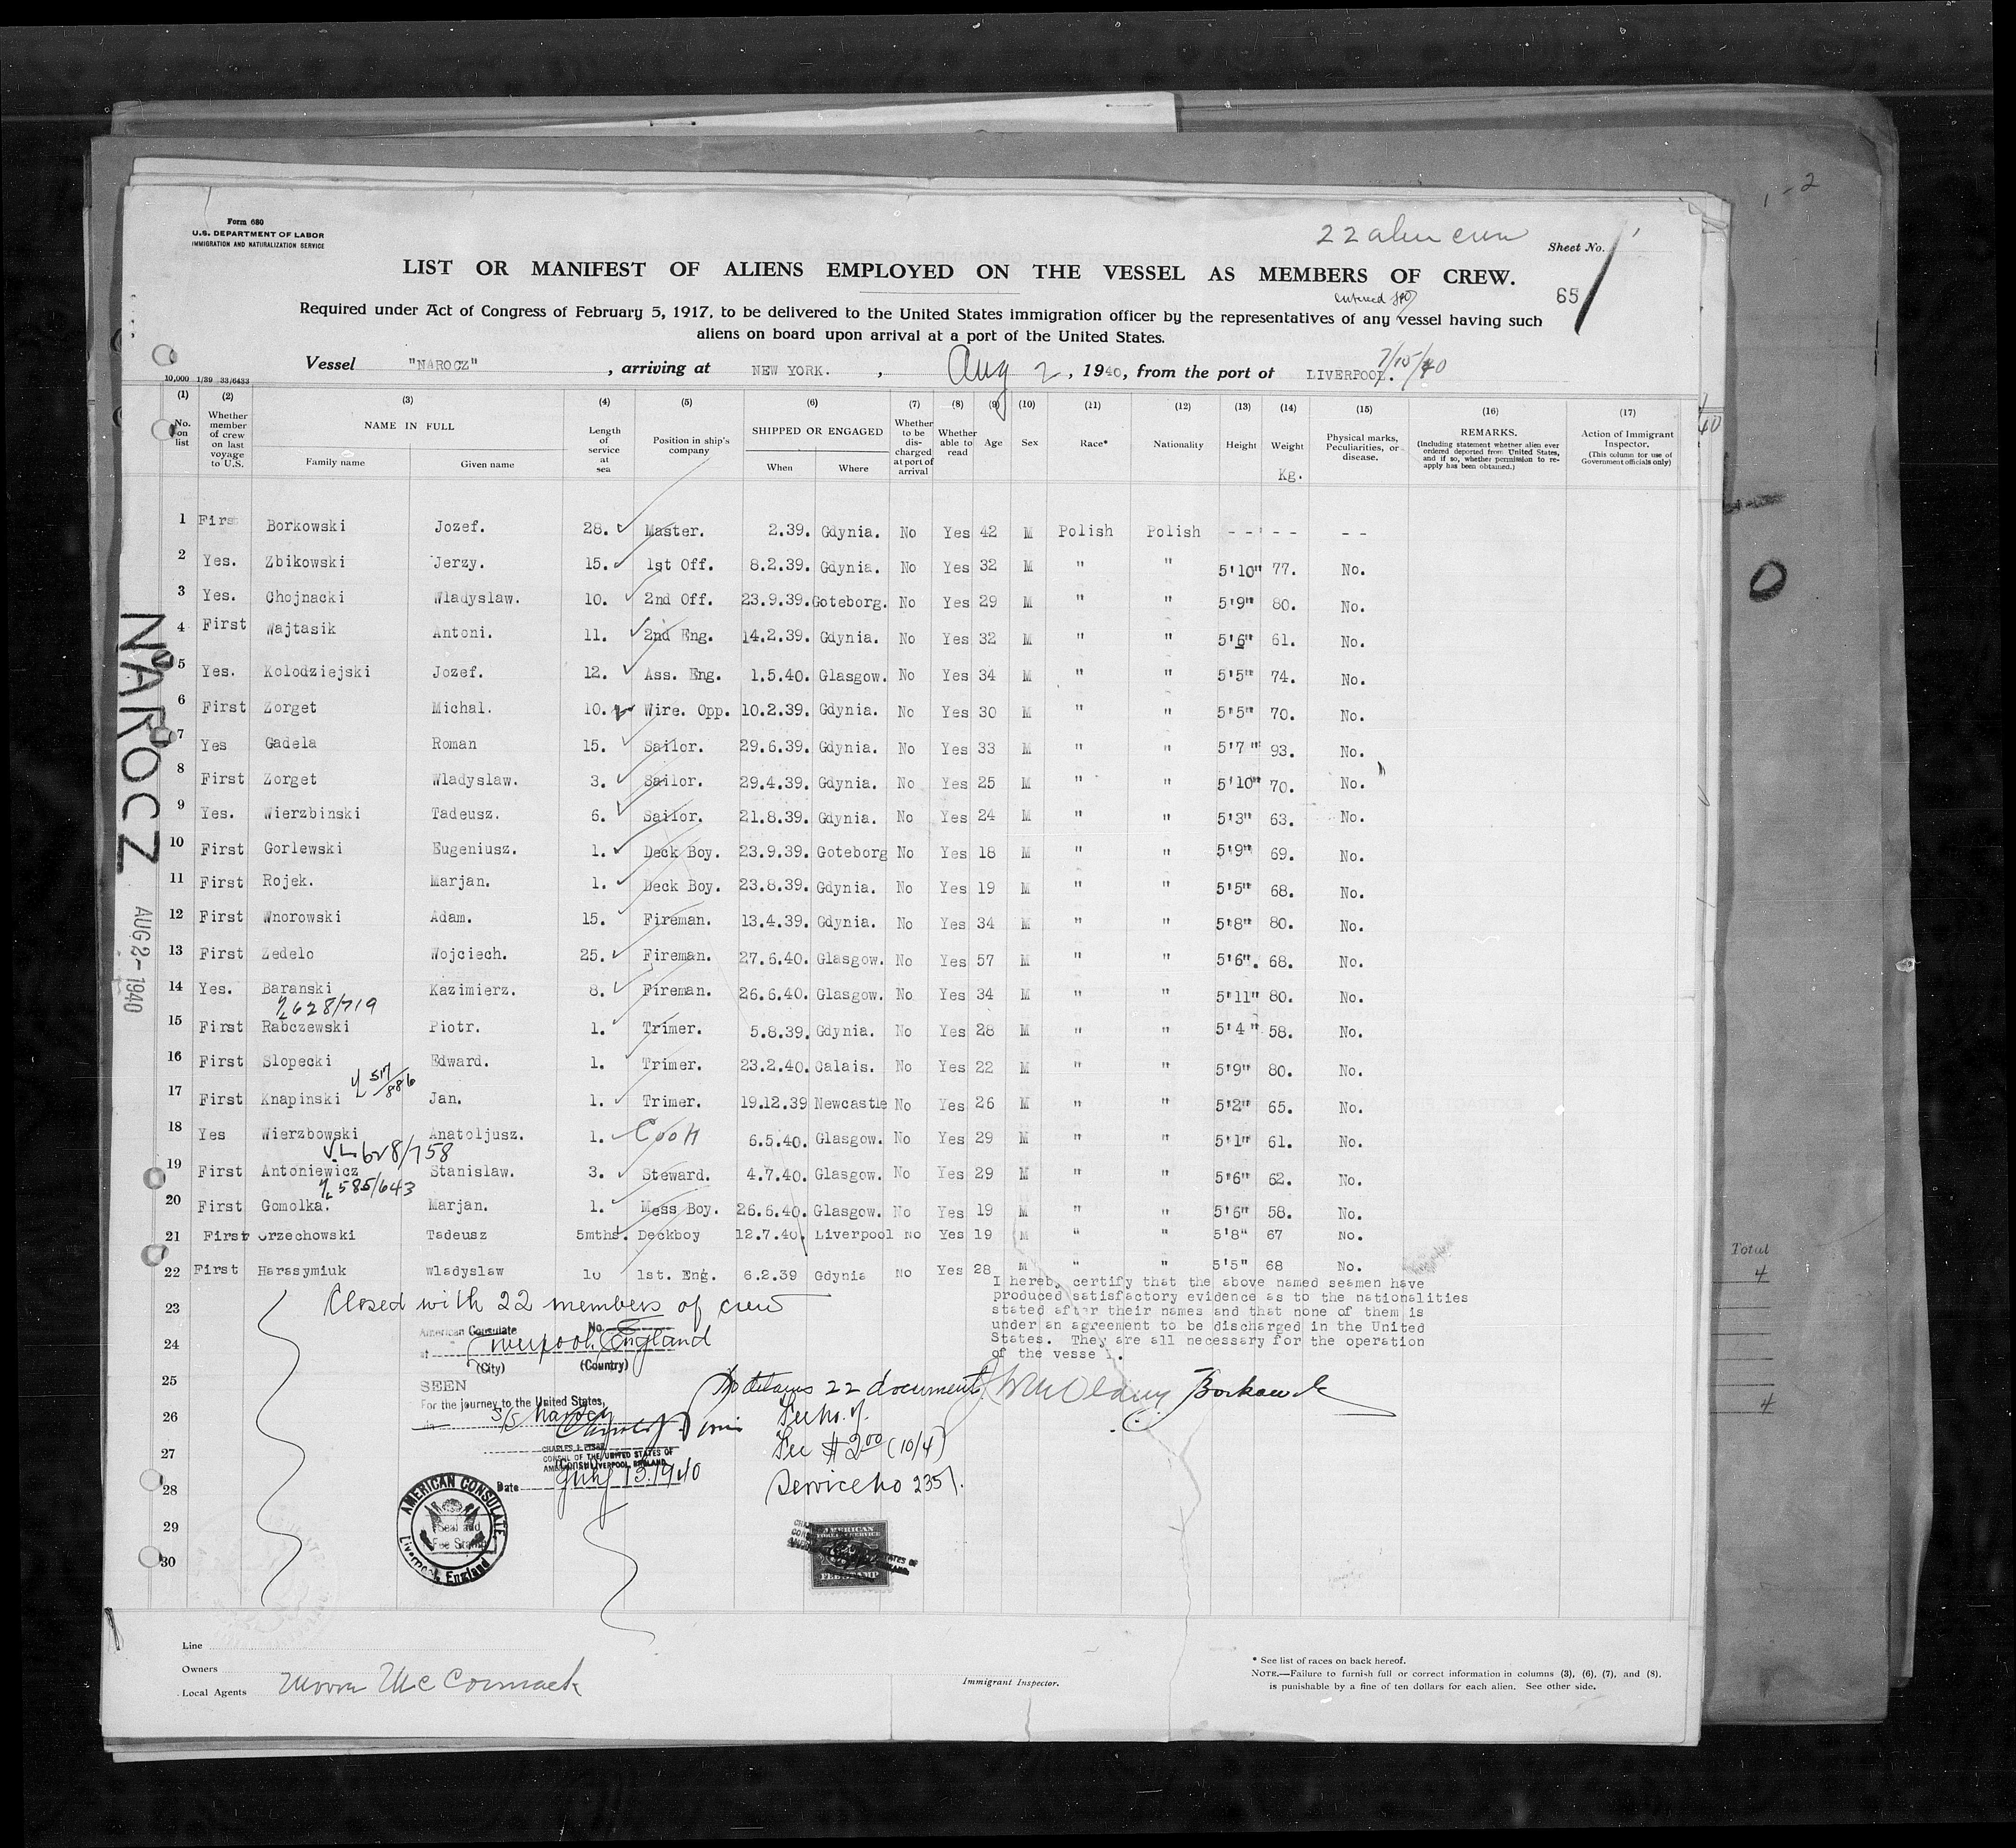 1 - 2
Form 680
U.S. DEPARTMENT OF LABOR
IMMIGRATION AND NATURALIZATION SERVICE
22 alien crew
Sheet No. 1
LIST OR MANIFEST OF ALIENS EMPLOYED ON THE VESSEL AS MEMBERS OF CREW.
65
entered
Required under Act of Congress of February 5, 1917, to be delivered to the United States immigration officer by the representatives of any vessel having such
aliens on board upon arrival at a port of the United States.
Vessel "NAROCZ", arriving at NEW YORK., Aug 2, 1940, from the port of LIVERPOOL. 7/15/40
10,000 1/39 33/6433
(1) (2) (3) (4) (5) (6) (7) (8) (9) (10) (11) (12) (13) (14) (15) (16) (17)
No. on list
Whether member of crew on last voyage to U.S.
NAME IN FULL
Family name Given name
Length of service at sea
Position in ship's company
SHIPPED OR ENGAGED
When Where
Whether to be discharged at port of arrival
Whether able to read
Age
Sex
Race*
Nationality
Height
Weight
Kg.
Physical marks, Peculiarities, or disease.
REMARKS.
(Including statement whether alien ever ordered deported from United States, and if so, whether permission to re-apply has been obtained.)
Action of Immigrant Inspector.
(This column for use of Government officials only)
1 First Borkowski Jozef. 28. Master. 2.39. Gdynia. No Yes 42 M Polish Polish - - - - - -
2 Yes. Zbikowski Jerzy. 15. 1st Off. 8.2.39. Gdynia. No Yes 32 M " " 5'10" 77. No.
3 Yes. Chojnacki Wladyslaw. 10. 2nd Off. 23.9.39. Goteborg. No Yes 29 M " " 5'9" 80. No.
4 First Wajtasik Antoni. 11. 2nd Eng. 14.2.39. Gdynia. No Yes 32 M " " 5'6" 61. No.
5 Yes. Kolodziejski Jozef. 12. Ass. Eng. 1.5.40. Glasgow. No Yes 34 M " " 5'5" 74. No.
6 First Zorget Michal. 10. Wire. Opp. 10.2.39. Gdynia. No Yes 30 M " " 5'5" 70. No.
7 Yes Gadela Roman 15. Sailor. 29.6.39. Gdynia. No Yes 33 M " " 5'7" 93. No.
8 First Zorget Wladyslaw. 3. Sailor. 29.4.39. Gdynia. No Yes 25 M " " 5'10" 70. No.
9 Yes. Wierzbinski Tadeusz. 6. Sailor. 21.8.39. Gdynia. No Yes 24 M " " 5'3" 63. No.
10 First Gorlewski Eugeniusz. 1. Deck Boy. 23.9.39. Goteborg No Yes 18 M " " 5'9" 69. No.
11 First Rojek. Marjan. 1. Deck Boy. 23.8.39. Gdynia. No Yes 19 M " " 5'5" 68. No.
12 First Wnorowski Adam. 15. Fireman. 13.4.39. Gdynia. No Yes 34 M " " 5'8" 80. No.
13 First Zedelo Wojciech. 25. Fireman. 27.6.40. Glasgow. No Yes 57 M " " 5'6". 68. No.
14 Yes. Baranski Kazimierz. 8. Fireman. 26.6.40. Glasgow. No Yes 34 M " " 5'11" 80. No.
628/719
15 First Rabczewski Piotr. 1. Trimer. 5.8.39. Gdynia. No Yes 28 M " " 5'4" 58. No.
16 First Slopecki Edward. 1. Trimer. 23.2.40. Calais. No Yes 22 M " " 5'9" 80. No.
517/886
17 First Knapinski Jan. 1. Trimer. 19.12.39 Newcastle No Yes 26 M " " 5'2" 65. No.
18 Yes Wierzbowski Anatoljusz. 1. Cook 6.5.40. Glasgow. No Yes 29 M " " 5'1" 61. No.
VL 628/758
19 First Antoniewicz Stanislaw. 3. Steward. 4.7.40. Glasgow. No Yes 29 M " " 5'6" 62. No.
585/643
20 First Gomolka. Marjan. 1. Mess Boy. 26.6.40. Glasgow. No Yes 19 M " " 5'6" 58. No.
21 First Orzechowski Tadeusz 5mths. Deckboy 12.7.40. Liverpool No Yes 19 M " " 5'8" 67 No.
22 First Harasymiuk Wladyslaw 10 1st. Eng. 6.2.39 Gdynia No Yes 28 M " " 5'5" 68 No.
NAROCZ
AUG 2 - 1940
23
24
25
26
27
28
29
30
Closed with 22 members of crew
I hereby certify that the above named seamen have
produced satisfactory evidence as to the nationalities
stated after their names and that none of them is
under an agreement to be discharged in the United
States. They are all necessary for the operation
of the vessel.
American Consulate No.
at Liverpool, England
(City) (Country)
SEEN
For the journey to the United States,
S/S Narocz
CONSUL OF THE UNITED STATES OF
AMERICA LIVERPOOL, ENGLAND
Date July 13, 1940
22 documents
Fee $2.00 (10/4)
Service No 2351.
Borkowski
AMERICAN CONSULATE
Seal and
Fee Stamp
Liverpool, England
AMERICAN
FOREIGN SERVICE
FEE STAMP
Total
4
4
Line
Owners
Local Agents Moore McCormack
Immigrant Inspector.
* See list of races on back hereof.
NOTE.—Failure to furnish full or correct information in columns (3), (6), (7), and (8).
is punishable by a fine of ten dollars for each alien. See other side.